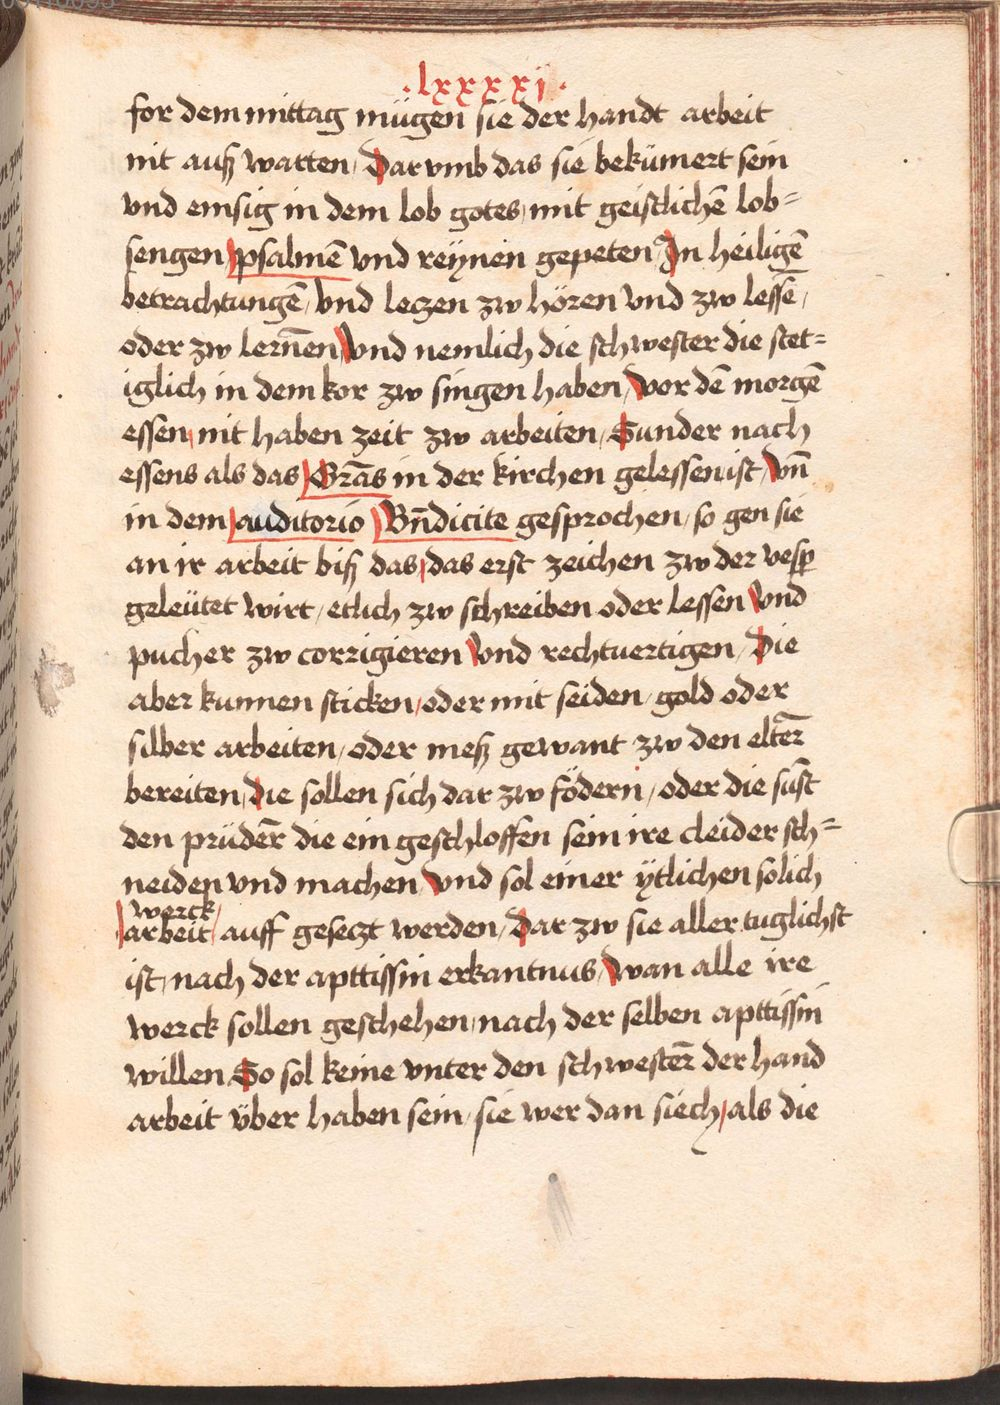 ·lxxxxi·
for dem mittag mügen sie der handt arbeit
nit auß warten / Dar vmb das sie bekümert sein
vnd emsig in dem lob gotes / mit geistlichē lob=
sengen psalmē vnd reÿnen gepeten Jn heiligē
betrachtungē / vnd leczen zw hören vnd zw lessē /
oder zw lerñen vnd nemlich die schwester die stet=
iglich in dem kor zw singen haben / vor dē morgē
essen / nit haben zeit zw arbeiten / Sunder nach
essens als das Grãs in der kirchen gelessen ist / vñ
in dem auditorio Bñdicite gesprochen / so gen sie
an ir arbeit biß das / das erst zeichen zw der vesp̄
geleütet wirt / etlich zw schreiben oder lessen vnd
pucher zw corrigieren vnd rechtuertigen / Die
aber kunnen sticken / oder mit seiden / gold oder
silber arbeiten / oder meß gewant zw den elter̄
bereiten / die sollen sich dar zw födern / oder die sust̄
den prüder̄ die ein geschloffen sein ire cleider sch=
neiden vnd machen / vnd sol einer ÿtlichen solich
werck /
arbeit auff geseczt werden / Dar zw sie aller tuglichst
ist / nach der apttissin erkantnus / wan alle ire
werck sollen geschehen / nach der selben apttissin
willen So sol keine vnter den schwester̄ der hand
arbeit über haben sein / sie wer dan siech / als die